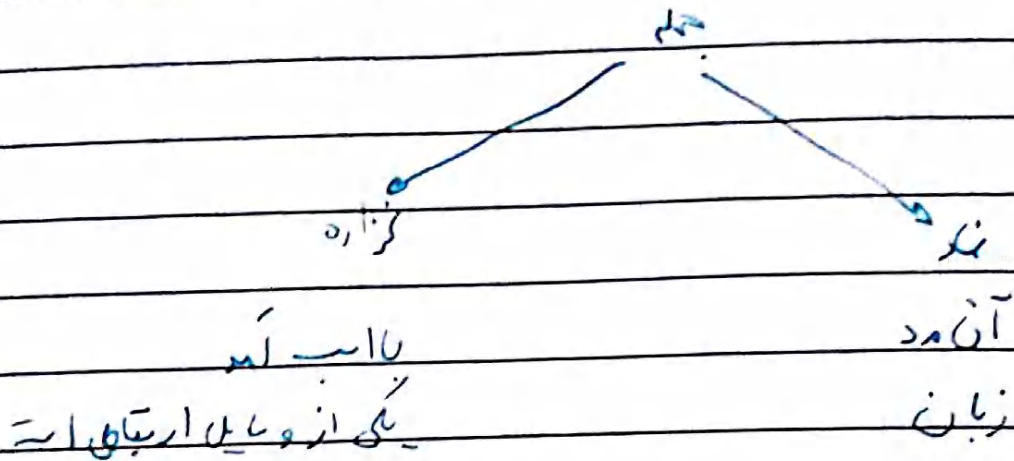 جمله
نهاد گزاره
آن مرد با اسب آمد
زبان یکی از وسایل ارتباطی است